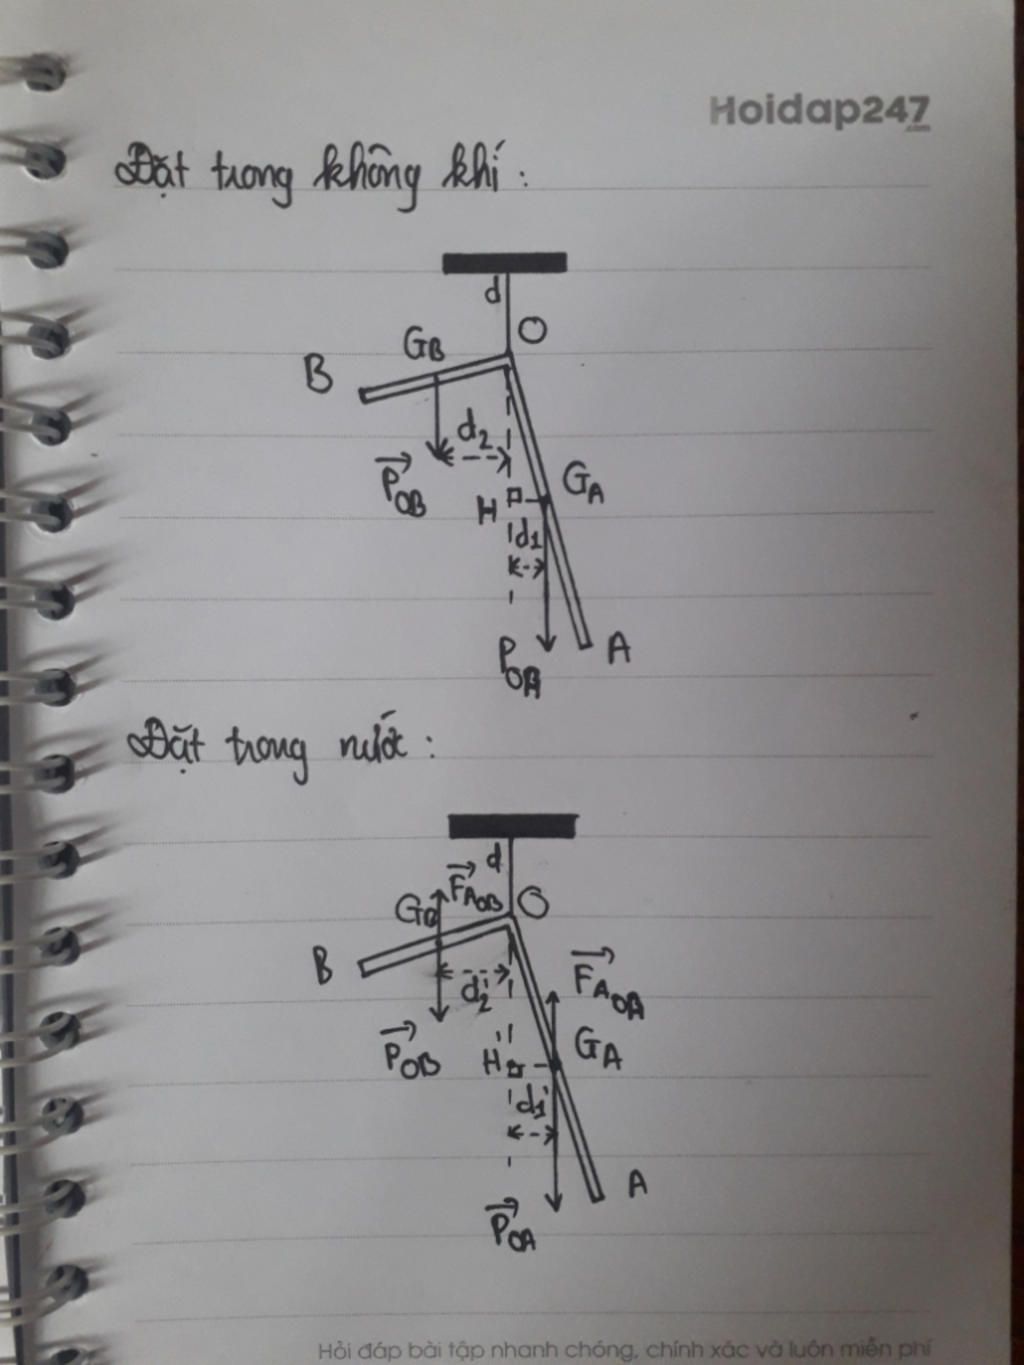 Hoidap247
.com
Đặt trong không khí :
d
O
GB
B
d2
POB
GA
H
d1
POA
A
Đặt trong nước :
d
FAOB
GB
O
B
d2'
FAOA
POB
H'
GA
d1'
A
POA
Hỏi đáp bài tập nhanh chóng, chính xác và luôn miễn phí